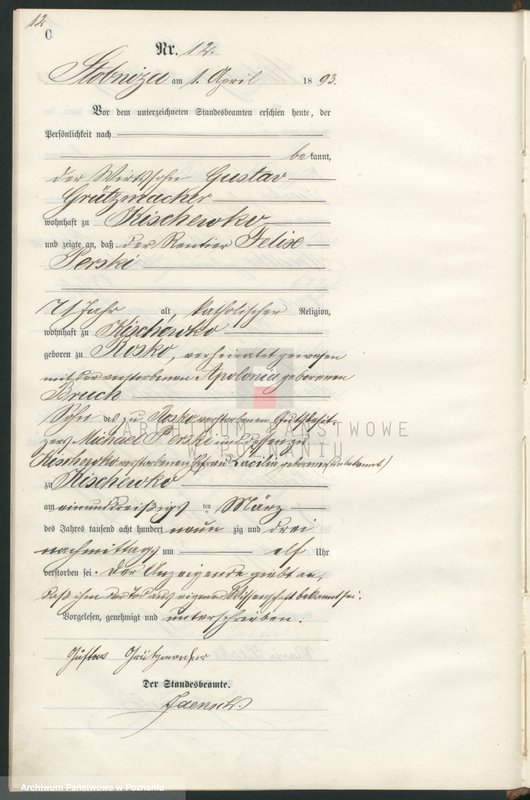 12
C
Nr. 12.
Stobnica am 1. April 1893.
Vor dem unterzeichneten Standesbeamten erschien heute, der
Persönlichkeit nach
bekannt,
der Wirthssohn Gustav
Grützmacher
wohnhaft zu Kischewko
und zeigte an, daß der Rentier Felix
Perski
71 Jahr alt, katholischer Religion,
wohnhaft zu Kischewko
geboren zu Rosko, verheirathet gewesen
mit der verstorbenen Apolonia geborenen
Bruch
Sohn des zu Rosko verstorbenen Gutsbesit-
zers Michael Perski und dessen zu
Kischewko verstorbenen Ehefrau Cäcilie geborenen unbekannt)
zu Kischewko
am einunddreißigsten März
des Jahres tausend acht hundert neunzig und drei
nachmittags um elf Uhr
verstorben sei. Der Anzeigende giebt an,
daß ihm der Tod aus eigener Wissenschaft bekannt sei.
Vorgelesen, genehmigt und unterschrieben.
Gustav Grützmacher
Der Standesbeamte.
Jaensch
ARCHIWUM PAŃSTWOWE
W POZNANIU
Archiwum Państwowe w Poznaniu